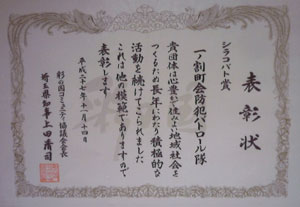 表彰状
シラコバト賞
一ノ割町会防犯パトロール隊
貴団体は心豊かで住みよい地域社会を
つくるため長年にわたり積極的な
活動を続けてこられました
これは他の模範でありますので
表彰します
平成二十七年十一月十四日
彩の国コミュニティ協議会会長
埼玉県知事上田清司